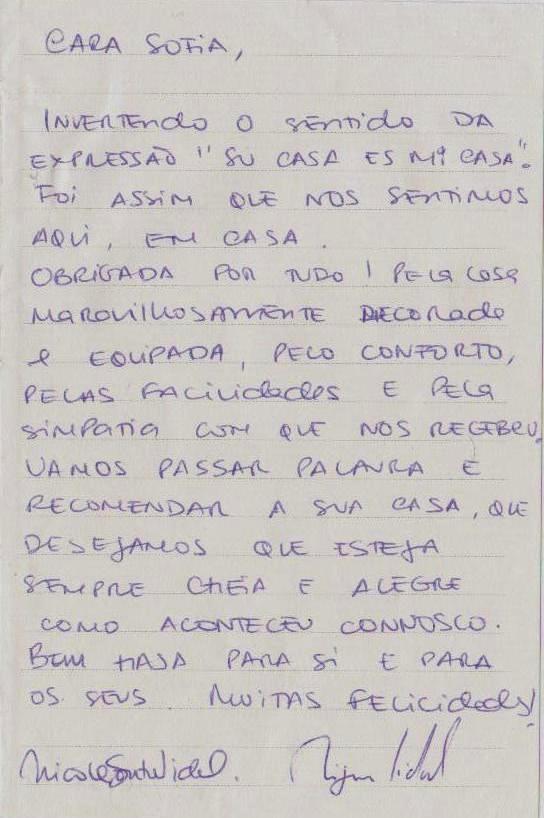 CARA SOFIA,
INVERTENDO O SENTIDO DA
EXPRESSÃO "SU CASA ES Mª CASA".
FOI ASSIM QUE NOS SENTIMOS
AQUI, EM CASA.
OBRIGADA POR TUDO! PELA CASA
MARAVILHOSAMENTE DECORADA
E EQUIPADA, PELO CONFORTO,
PELAS FACILIDADES E PELA
SIMPATIA COM QUE NOS RECEBEU.
VAMOS PASSAR PALAVRA E
RECOMENDAR A SUA CASA, QUE
DESEJAMOS QUE ESTEJA
SEMPRE CHEIA E ALEGRE
COMO ACONTECEU CONNOSCO.
BEM HAJA PARA SI E PARA
OS SEUS. MUITAS FELICIDADES!